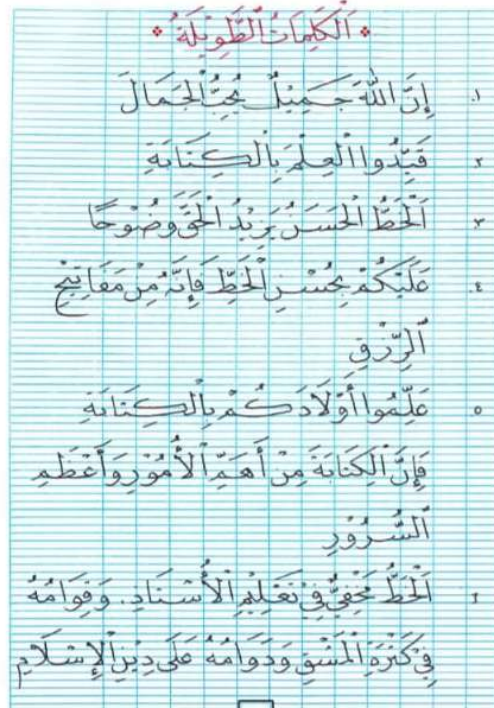 اَلْكَلِمَاتُ الطَّوِيْلَةُ
١. إِنَّ اللّٰهَ جَمِيْلٌ يُحِبُّ الْجَمَالَ
٢. قَيِّدُوا الْعِلْمَ بِالْكِتَابَةِ
٣. اَلْخَطُّ الْحَسَنُ يَزِيْدُ الْحَقَّ وَضُوْحًا
٤. عَلَيْكُمْ بِحُسْنِ الْخَطِّ فَإِنَّهُ مِنْ مَفَاتِيْحِ
الرِّزْقِ
٥ عَلِّمُوا أَوْلَادَكُمْ بِالْكِتَابَةِ
فَإِنَّ الْكِتَابَةَ مِنْ أَهَمِّ الْأُمُوْرِ وَأَعْظَمِ
السُّرُوْرِ
٦ اَلْخَطُّ مَخْفِيٌّ فِيْ تَعْلِيْمِ الْأُسْتَاذِ. وَقِوَامُهُ
فِيْ كَثْرَةِ الْمَشْقِ وَدَوَامُهُ عَلَى دِيْنِ الْإِسْلَامِ